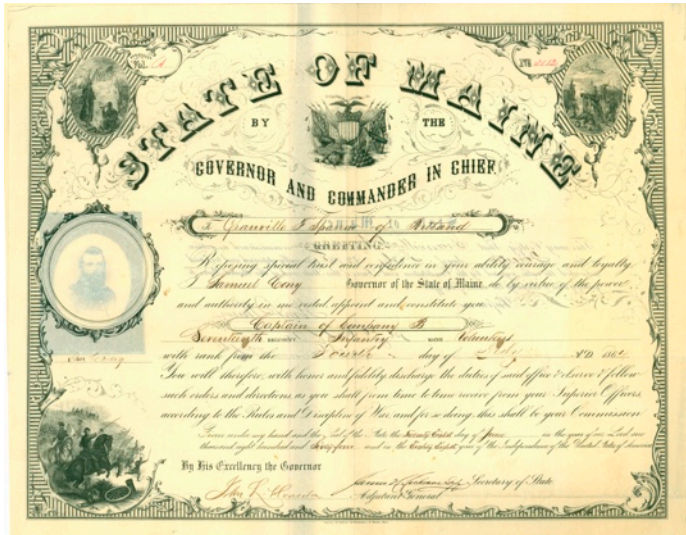 STATE OF MAINE
BY THE
GOVERNOR AND COMMANDER IN CHIEF,
To Granville F. Sparrow of Portland
GREETING.
Reposing special trust and confidence in your ability courage and loyalty
I Samuel Cony Governor of the State of Maine do by virtue of the power
and authority in me vested appoint and constitute you
Captain of Company B
Seventeenth REGIMENT Infantry Volunteers
with rank from the Fourth day of July A.D. 186
You will therefore, with honor and fidelity discharge the duties of said office & observe & follow
such orders and directions, as you shall from time to time receive from your Superior Officers,
according to the Rules and Discipline of War and for so doing this shall be your Commission
Given under my hand and the Seal of the State the Twenty Eighth day of June in the year of our Lord one
thousand eight hundred and Sixty four and in the Eighty Eighth year of the Independence of the United States of America
By His Excellency the Governor
Secretary of State
Adjutant General